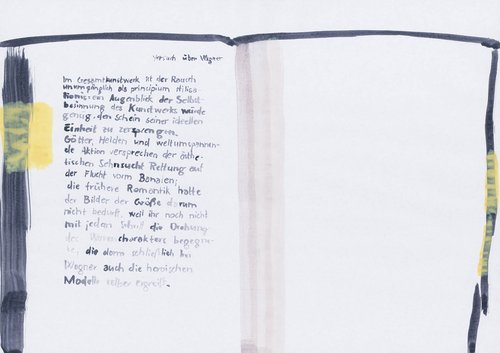 Versuch über Wagner
Im Gesamtkunstwerk ist der Rausch
unumgänglich als principium stilisa-
tionis: ein Augenblick der Selbst-
besinnung des Kunstwerks würde
genug, den Schein seiner ideellen
Einheit zu zersprengen.
Götter, Helden und weltumspannen-
de Aktion versprechen der ästhe-
tischen Sehnsucht Rettung auf
der Flucht vorm Banalen;
die frühere Romantik hatte
der Bilder der Größe darum
nicht bedurft, weil ihr noch nicht
mit jedem Schritt die Drohung
des Warencharakters begegne-
te, die dann schließlich bei
Wagner auch die heroischen
Modelle selber ergreift.